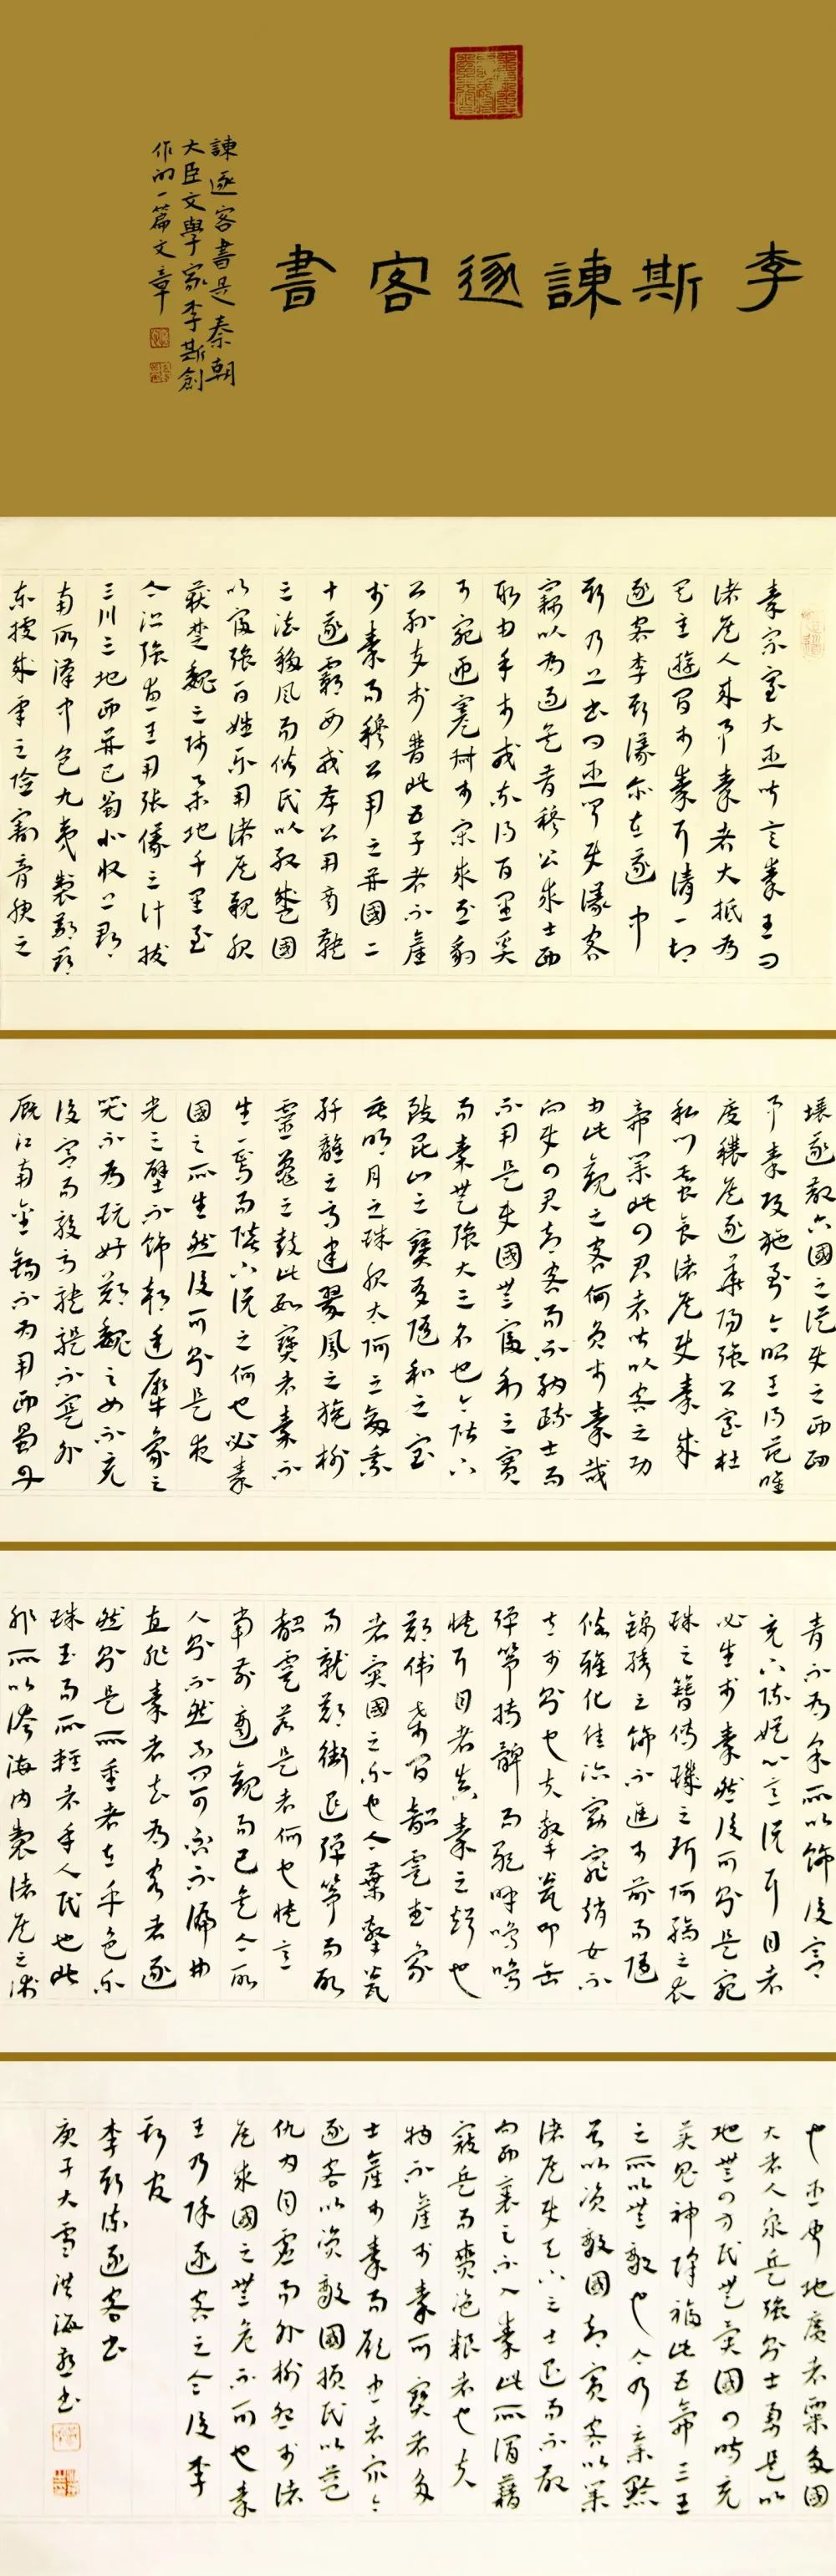 李斯諫逐客書
諫逐客書是秦朝
大臣文學家李斯創
作的一篇文章
秦宗室大臣皆言秦王曰
諸侯人来事秦者大抵为
其主遊間於秦耳請一切
逐客李斯議亦在逐中
斯乃上书曰臣聞吏議客
竊以为過矣昔穆公求士西
取由於戎東得百里奚
於宛迎蹇叔於宋求丕豹
公孫支於晉此五子者不産
於秦而穆公用之并國二
十遂霸西戎孝公用商鞅
之法移風易俗民以殷盛國
以富強百姓樂用諸侯親服
獲楚魏之師舉地千里至
今治強惠王用張儀之計拔
三川之地西并巴蜀北收上郡
南取漢中包九夷製鄢郢
東據成皋之險割膏腴之
壤遂散六國之從使之西面
事秦功施到今昭王得范雎
廢穰侯逐華陽強公室杜
私門蠶食諸侯使秦成
帝業此四君者皆以客之功
由此觀之客何負於秦哉
向使四君却客而不納疏士而
不用是使國無富利之實
而秦無強大之名也今陛下
致昆山之寶有隨和之宝
垂明月之珠服太阿之劍乘
纖離之馬建翠鳳之旗樹
靈鼉之鼓此數寶者秦不
生一焉而陛下說之何也必秦
國之所生然後可則是夜
光之璧不飾朝廷犀象之
器不为玩好鄭魏之女不充
後宮而駿馬駃騠不實外
廄江南金錫不为用西蜀丹
青不为采所以飾後宮
充下陳娱心意說耳目者
必生於秦然後可則是宛
珠之簪傅璣之珥阿縞之衣
錦繡之飾不進於前而隨
俗雅化佳冶窈窕趙女不
立於側也夫擊甕叩缶
彈箏搏髀而歌呼嗚嗚
快耳目者真秦之聲也
鄭衛桑間韶虞武象
者異國之樂也今棄擊甕
而就鄭衛退彈箏而取
韶虞若是者何也快意
當前適觀而已矣今取
人則不然不問可否不論曲
直非秦者去为客者逐
然則是所重者在乎色樂
珠玉而所輕者乎人民也此
非所以跨海内製諸侯之術
也臣聞地廣者粟多國
大者人衆兵強則士勇是以
地無四方民無異國四時充
美鬼神降福此五帝三王
之所以無敵也今乃棄黔
首以资敵國却賓客以業
諸侯使天下之士退而不敢
向西裹足不入秦此所謂藉
寇兵而賫盜糧者也夫
物不産於秦可寶者多
士産於秦而願忠者衆今
逐客以资敵國損民以益
仇内自虚而外樹怨於諸
侯求國之無危不可也秦
王乃除逐客之令復李
斯官
李斯諫逐客书
庚子大雪洪海书